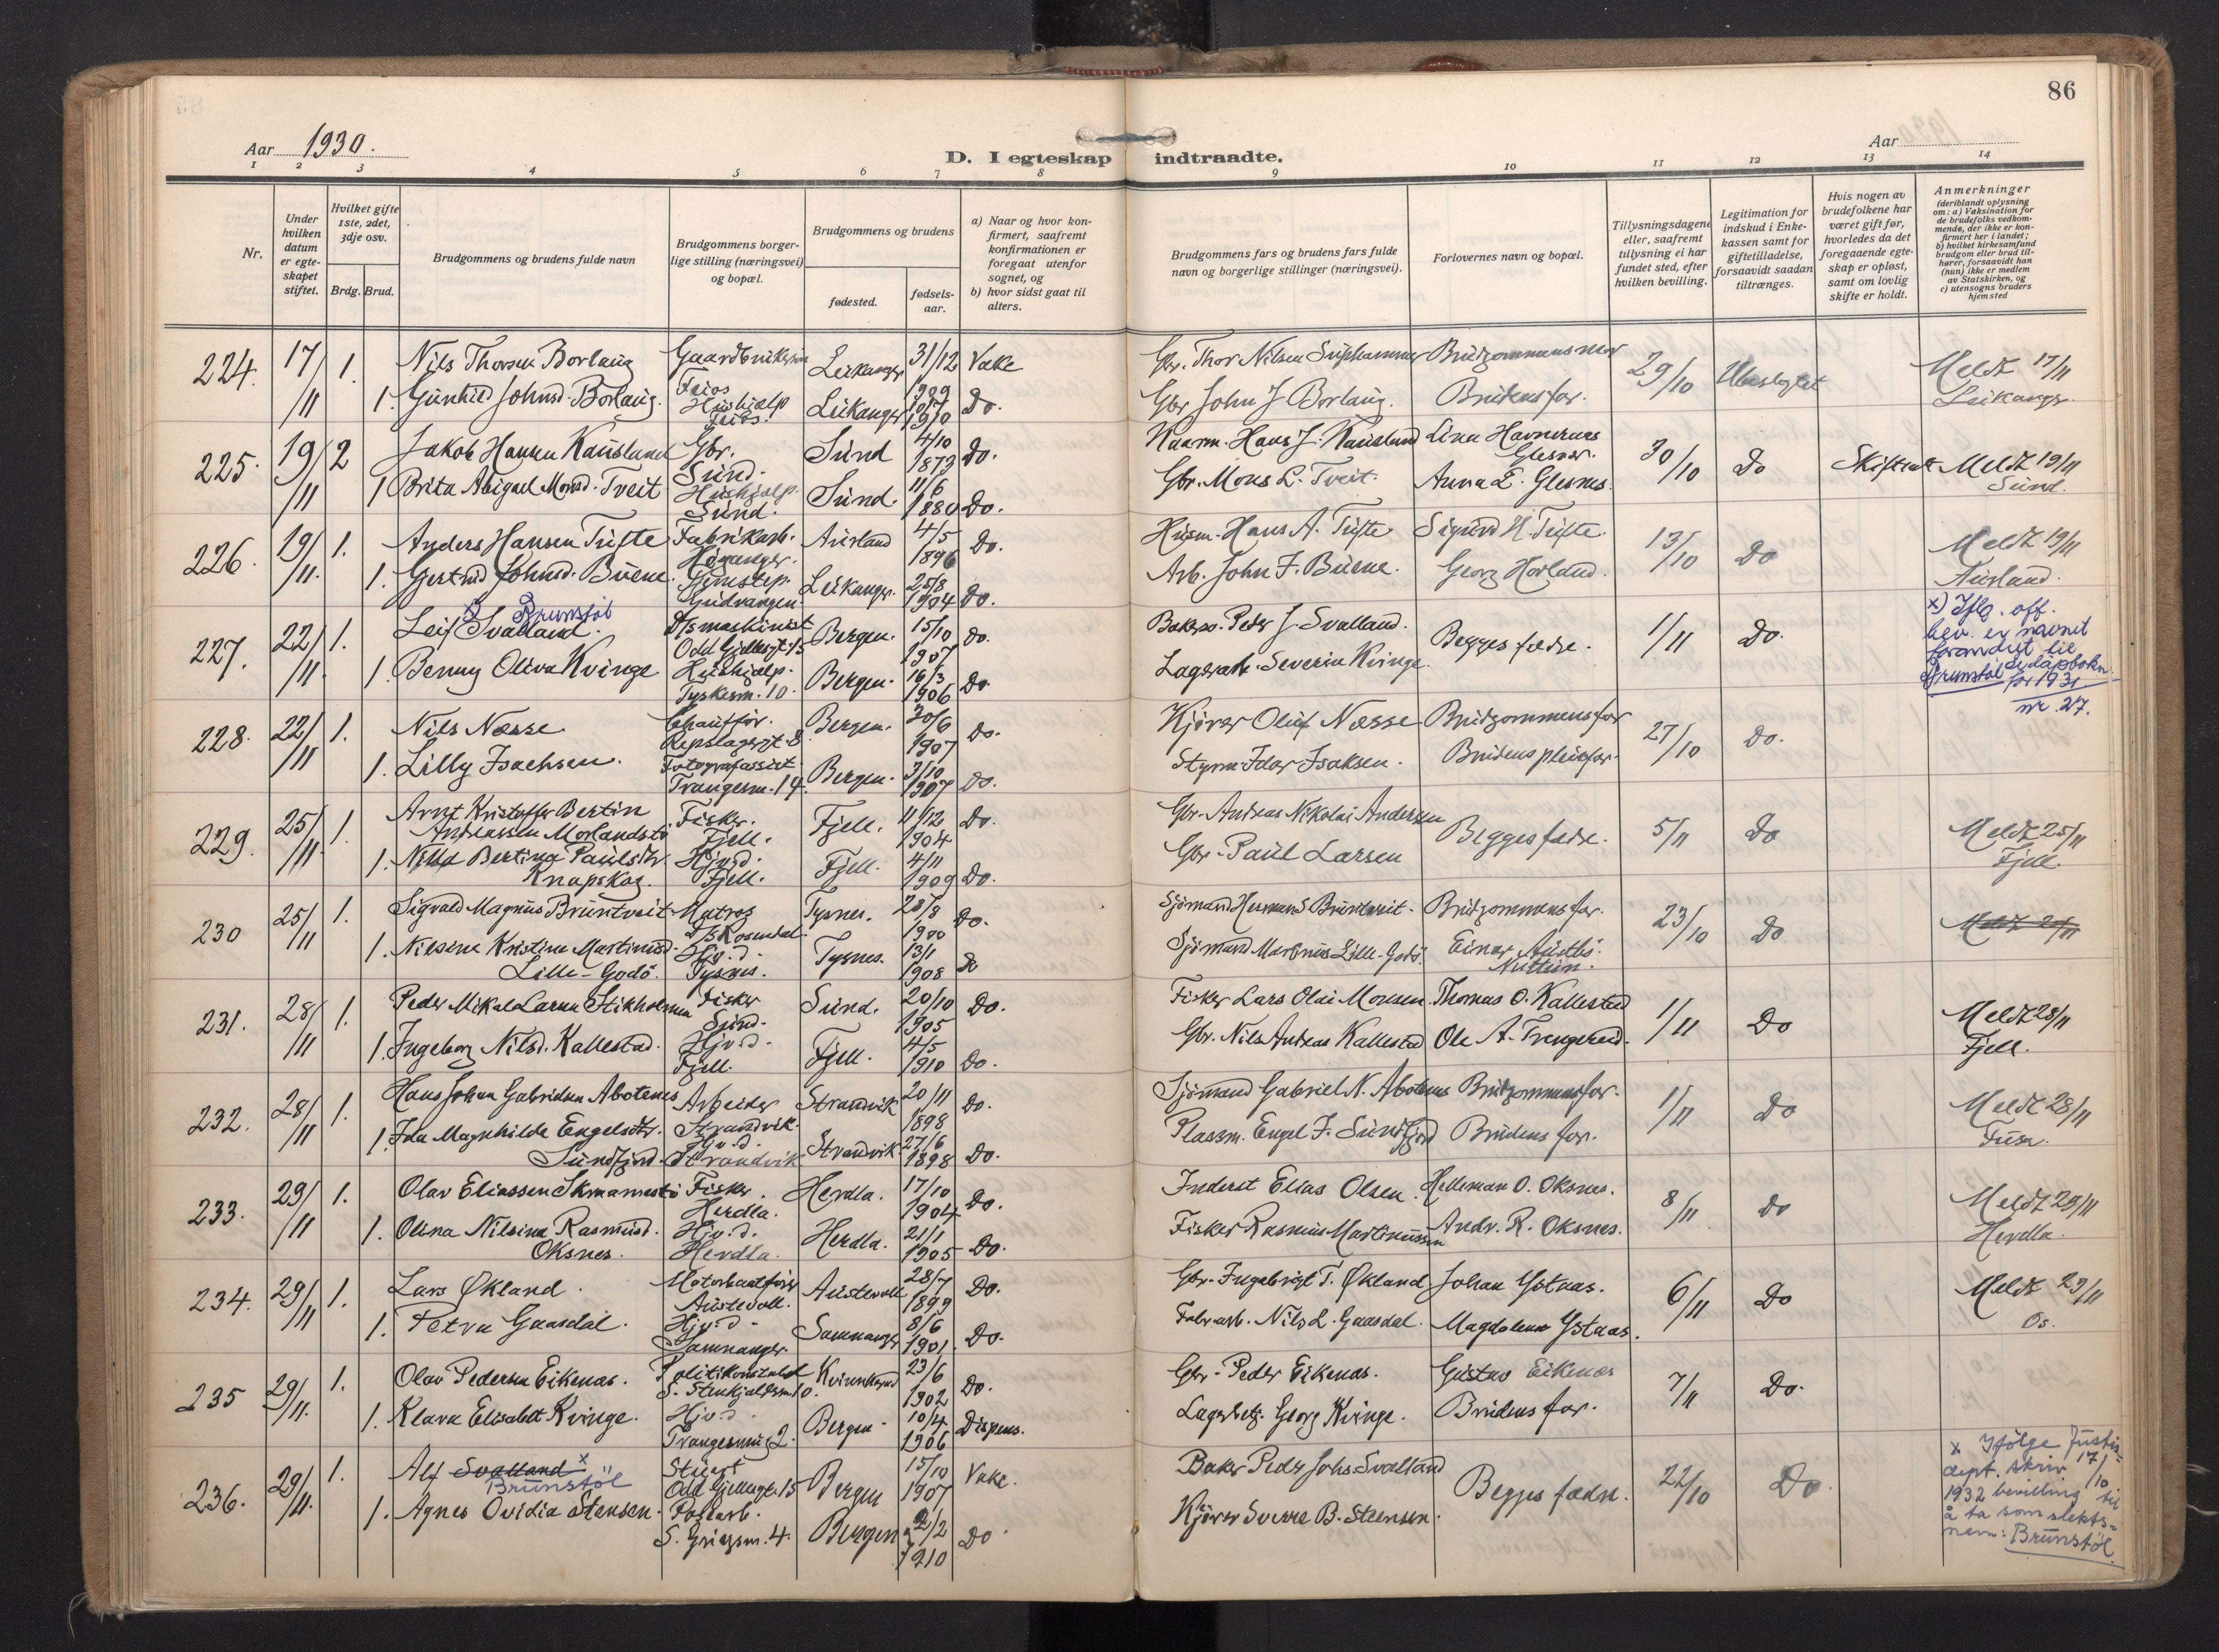 86
Aar 1930.
D. I egteskap indtraadte.
Aar
1 2 3 4 5 6 7 8 9 10 11 12 13 14
Nr.
Under hvilken datum er egte-skapet stiftet.
Hvilket gifte 1ste, 2det, 3dje osv.
Brdg. Brud.
Brudgommens og brudens fulde navn
Brudgommens borger-lige stilling (næringsvei) og bopæl.
Brudgommens og brudens
fødested.
fødsels-aar.
a) Naar og hvor kon-firmert, saafremt konfirmationen er foregaat utenfor sognet, og
b) hvor sidst gaat til alters.
Brudgommens fars og brudens fars fulde navn og borgerlige stillinger (næringsvei).
Forlovernes navn og bopæl.
Tillysningsdagene eller, saafremt tillysning ei har fundet sted, efter hvilken bevilling.
Legitimation for indskud i Enke-kassen samt for giftetilladelse, forsaavidt saadan tiltrænges.
Hvis nogen av brudefolkene har været gift før, hvorledes da det foregaaende egte-skap er opløst, samt om lovlig skifte er holdt.
Anmerkninger
(deriblandt oplysning om: a) Vaksination for de brudefolks vedkom-mende, der ikke er kon-firmert her i landet; b) hvilket kirkesamfund brudgom eller brud til-hører, forsaavidt han (hun) ikke er medlem av Statskirken, og c) utensogns bruders hjemsted
224. 17/11 1. Nils Thorsen Borlaug Leikanger 31/12 1909 Vake Gbr. Thor Nilsen Brudgommens mor 29/10 Ubeslegtet Meldt 17/11
1. Gunhild Johnsd. Borlaug. Feios Hushjelp Feios. Leikanger 1910 Do. Gbr John J Borlaug. Brudens far. Leikanger
225. 19/11 2 Jakob Hansen Kausland Gbr. Sund. Sund 4/10 1873 Do. Hans J. Kausland Lina Havnernes Glesnes. 30/10 Do Skifteatt Meldt 19/11
1 Brita Abigael Monsd. Tveit Hushjelp. Sund. Sund. 11/6 1880 Do. Gbr. Mons L. Tveit. Anna E. Glesnes. Sund.
226. 19/11. 1. Anders Hansen Tufte Fabrikarb. Høyanger. Aurland 4/5 1896 Do. Husm. Hans A. Tufte Sigurd H. Tufte. 13/10 Do Meldt 19/11
1. Gjertrud Johnsd. Buene. Gudvangen. Leikanger. 25/8 1904 Do. Arb. John F. Buene. Georg Horland. Aurland.
227. 22/11. 1. Leif Svalland. Brunstøl D/S maskinist Odd Gjellesgt. 15 Bergen. 15/10 1907 Do. Peder J. Svalland. Begges fædre. 1/11 Do.
1. Benny Oliva Kvinge Hushjelp. Tyskesm. 10. Bergen. 16/3 1906 Do. Lagerarb. Severin Kvinge.
x) Iflg. off. bev. er navnet forandret til Brunstøl se dåpsbokn. for 1931 nr. 27.
228. 22/11 1. Nils Næsse Chauffør. Repslagergt. 8 Bergen. 20/6 1907 Do. Kjører Oluf Næsse Brudgommens far 27/10 Do.
1. Lilly Isachsen. Fotografassist. Trangesm. 14. Bergen. 3/10 1907 Do. Styrm. Idar Isaksen. Brudens pleiefar.
229. 25/11. 1. Arnt Kristoffer Bertin Andreassen Morlandstø Fisker. Fjell. Fjell. 11/12 1904 Do. Gbr. Andreas Nikolai Andersen Begges fædre. 5/11 Do Meldt 25/11
1. Bertina Paulsdtr. Knapskog. Hjv.d. Fjell. Fjell. 4/11 1909 Do. Gbr. Paul Larsen Fjell.
230 25/11 1. Sigvald Magnus Bruntveit Matros D/S Rosendal. Tysnes. 28/8 1900 Do. Sjømand Herman S Bruntveit. Brudgommens far. 23/10 Do Meldt 25/11
1. Nilsine Kristine Martinusd. Lille-Godø. Hjv.d. Tysnes. Tysnes. 13/1 1908 Do Sjømand Martinus Lille-Godø. Einar
231. 28/11 1. Peder Mikal Larsen Stikholmen Fisker Sund. Sund. 20/10 1905 Do. Fisker Lars Olai Monsen. Thomas O. Kallestad 1/11 Do Meldt 28/11
1. Ingeborg Nilsd. Kallestad. Hjv.d. Fjell. Fjell. 4/5 1910 Do. Gbr. Nils Andreas Kallestad Ole A. Trengereid. Fjell.
232. 28/11 1. Hans Johan Gabrielsen Abotenes Arbeider Strandvik. Strandvik 20/11 1898 Do. Sjømand Gabriel N. Abotenes Brudgommens far. 1/11 Do Meldt 28/11
1. Ida Magnhilde Engelsdtr. Sundfjord. Hjv.d. Strandvik Strandvik 27/6 1898 Do. Plassm. Engel J. Sundfjord Brudens far. Fusa.
233. 29/11 1. Olav Eliassen Skramestø Fisker. Herdla. Herdla. 17/10 1904 Do. Inderst Elias Olsen. Helleman O. Oksnes. 8/11 Do Meldt 29/11
1. Olina Nilsine Rasmusd. Oksnes. Hjv.d. Herdla. Herdla. 21/1 1905 Do. Fisker Rasmus Martinussen Andr. R. Oksnes. Herdla.
234. 29/11 1. Lars Økland. Motorbaatfører Austevoll. Austevoll 28/7 1899 Do. Gbr. Ingebrigt T. Økland Johan Ystaas. 6/11 Do Meldt 29/11
1. Petra Gaasdal. Hjv.d. Samnanger. Samnanger 8/6 1901. Do. Fabrarb. Nils L. Gaasdal. Magdalena Ystaas. Os.
235 29/11. 1. Olav Pedersen Eikenas. Politikonstabel S. Stenkjeldersm. 10. Kvinnherad 23/6 1902 Do. Gbr. Peder Eikenas. Gustav Eikenas 7/11 Do.
1. Klara Elisabet Kvinge. Hjv.d. Trangesmug 2. Bergen. 10/4 1906 Dispens. Georg Kvinge. Brudens far.
236. 29/11. 1. Alf Svalland x Brunstøl Stuert Odd Gjellesgt. 15 Bergen 15/10 1907 Vake. Baker Peder Johs. Svalland Begges fædre. 22/10 Do
1. Agnes Ovidia Stensen. S. Griegsm. 4. Bergen 2/2 1910 Do Kjører Sverre B. Steensen.
x Ifølge Justis-dept. skriv. 17/10 1932 bevilling til å ta som slekts-navn: Brunstøl.